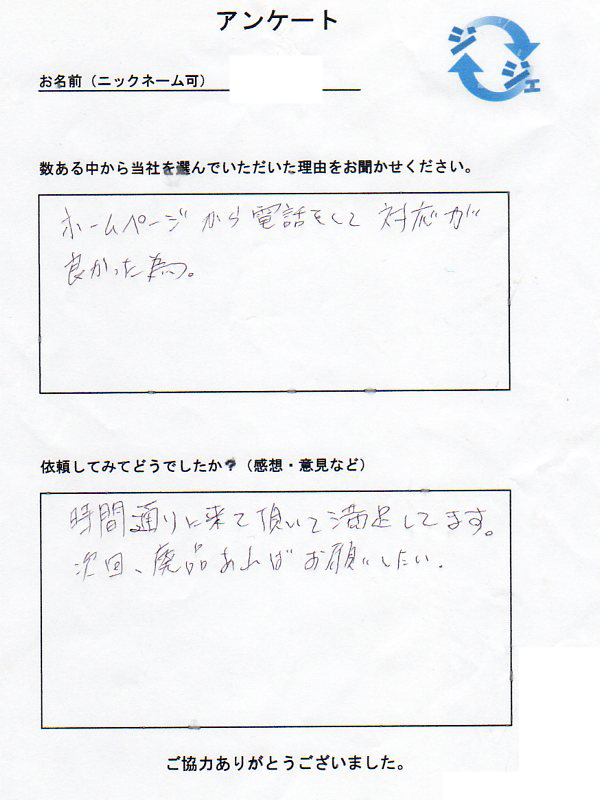 アンケート
ジ
ジェ
お名前（ニックネーム可）
数ある中から当社を選んでいただいた理由をお聞かせください。
ホームページから電話をして 対応が
良かった為。
依頼してみてどうでしたか？（感想・意見など）
時間通りに来て頂いて満足してます。
次回、廃品あればお願いしたい.
ご協力ありがとうございました。